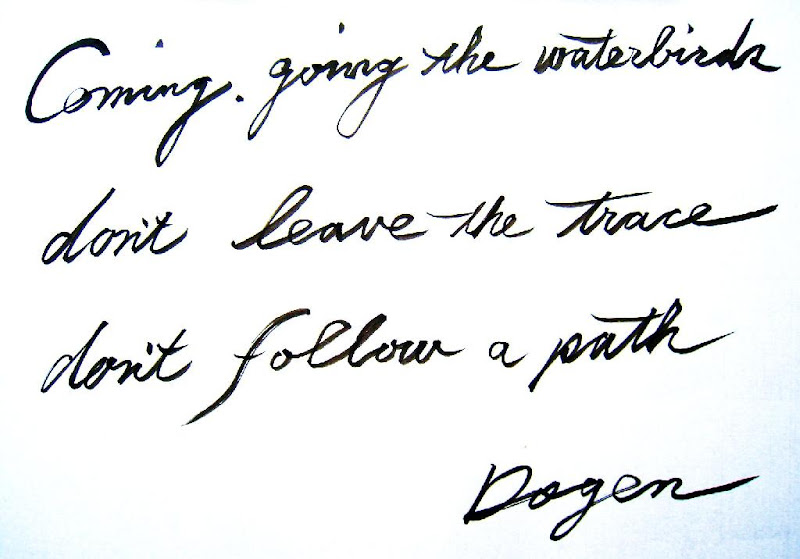 Coming. going the waterbirds
don't leave the trace
don't follow a path
Dogen